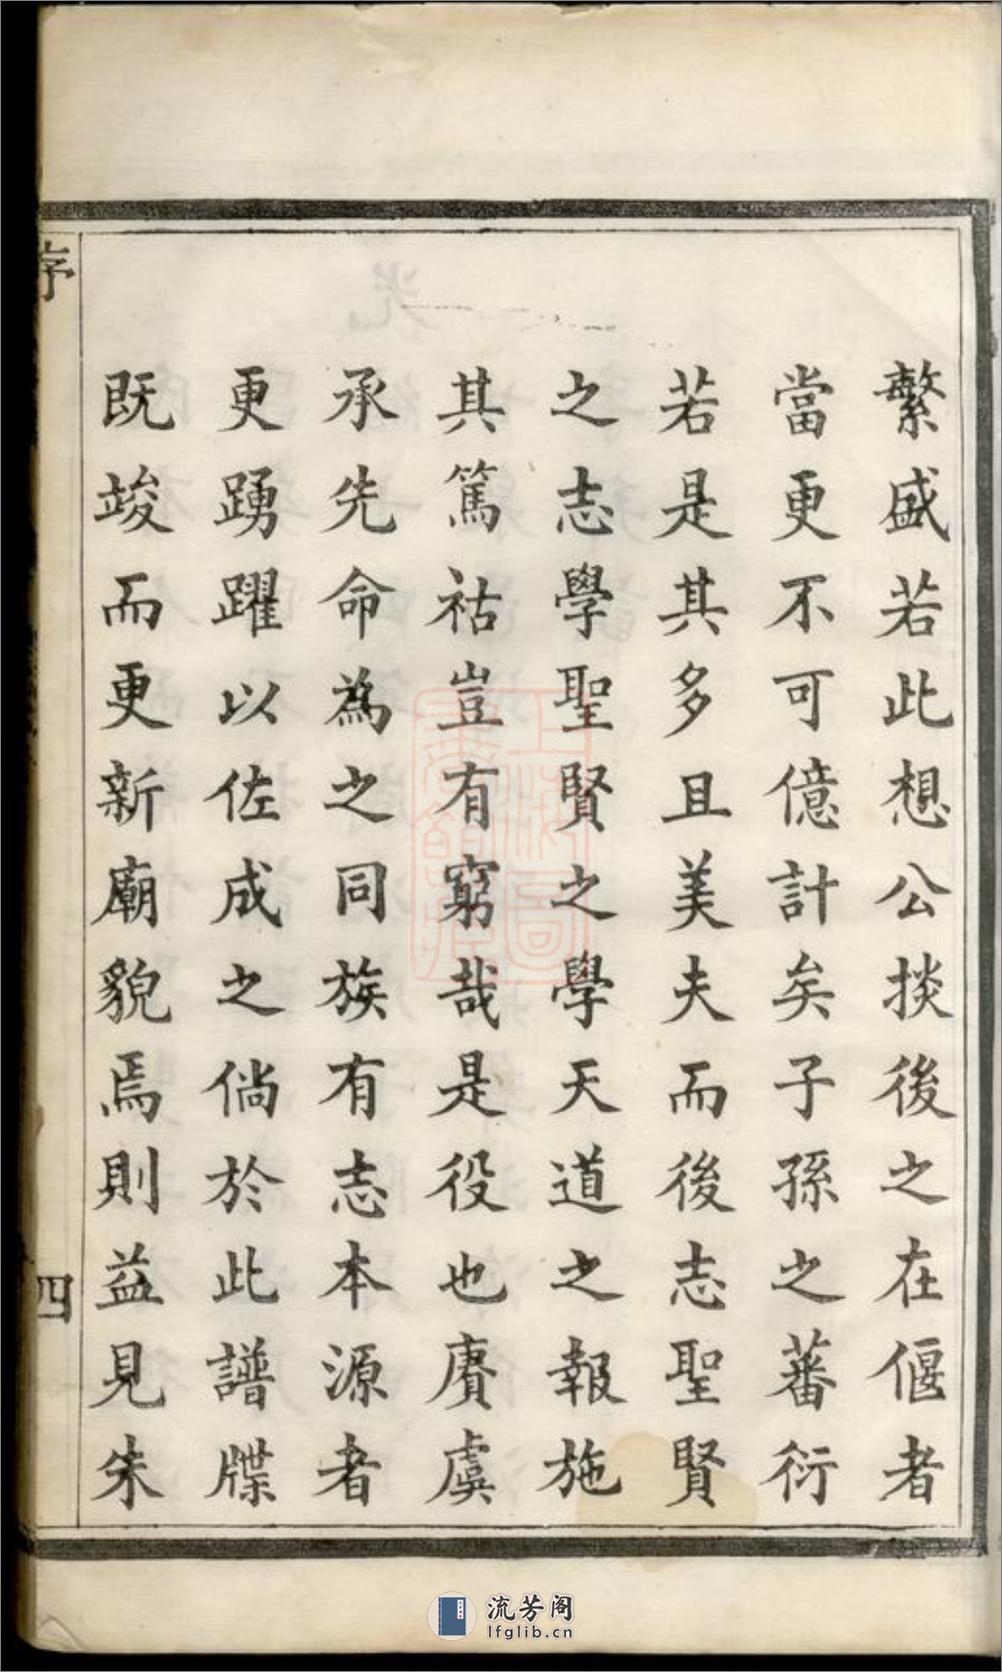 繁盛若此想公掞後之在偃者
當更不可億計矣子孫之蕃衍
若是其多且美夫而後志聖賢
之志學聖賢之學天道之報施
其篤祜豈有窮哉是役也賡虞
承先命為之同族有志本源者
更踴躍以佐成之倘於此譜牒
既竣而更新廟貌焉則益見朱
序
四
上海圖書館藏
流芳阁
lfglib.cn